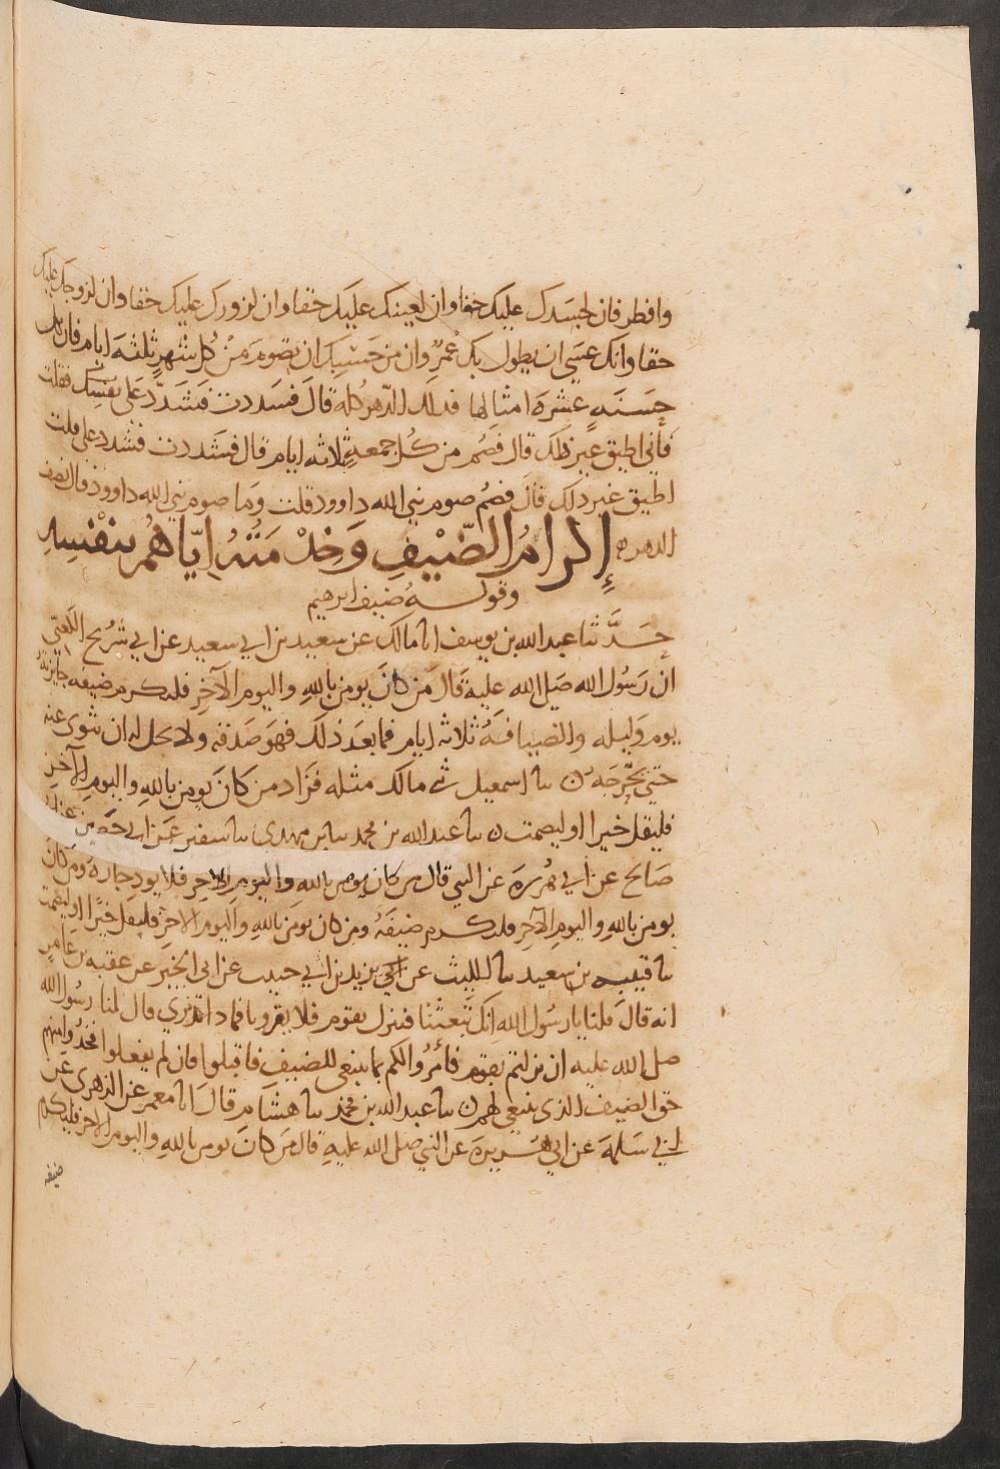 وافطر فان لجسدك عليك حقا وان لعينك عليك حقا وان لزورك عليك حقا وان لزوجك عليك
حقا وانك عسى ان يطول بك عمر وان من حسبك ان تصوم من كل شهر ثلثة ايام فان بكل
حسنه عشرة امثالها فذلك الدهر كله قال فشددت فشدد على نفسك فقلت
فاني اطيق غير ذلك قال فصم من كل جمعة ثلاثه ايام قال فشددت فشدد علي قلت
اطيق غير ذلك قال فصم صوم نبي الله داوود قلت وما صوم نبي الله داوود قال نصف
الدهر ه إكرام الضيف وخدمته اياهم بنفسه
وقوله ضيف ابرهيم
حدثنا عبد الله بن يوسف انا مالك عن سعيد بن ابي سعيد عن ابي شريح الكعبي
ان رسول الله صلى الله عليه قال من كان يومن بالله واليوم الآخر فليكرم ضيفه جايزته
يوم وليله والضيافة ثلاثه ايام فما بعد ذلك فهو صدقه ولا يحل له ان يثوى عنده
حتى يحرجه ن نا اسمعيل ني مالك مثله فزاد من كان يومن بالله واليوم الآخر
فليقل خيرا او ليصمت ن نا عبد الله بن محمد نا ابن مهدى نا سفين عن ابي حصين عن ابي
صالح عن ابي هريرة عن النبي قال من كان يومن بالله واليوم الاخر فلا يوذ جاره ومن كان
يومن بالله واليوم الآخر فليكرم ضيفه ومن كان يومن بالله واليوم الاخر فليقل خيرا او ليصمت
نا قتيبه بن سعيد نا الليث عن يزيد بن ابي حبيب عن ابى الخير عن عقبه بن عامر
انه قال قلنا يا رسول الله انك تبعثنا فننزل بقوم فلا يقرونا فما ذا ترى قال لنا رسول الله
صلى الله عليه ان نزلتم بقوم فأمروا لكم بما ينبغى للضيف فاقبلوا فان لم يفعلوا فخذوا منهم
حق الضيف الذى ينبغي لهم ن نا عبد الله بن محمد نا هشام قال انا معمر عن الزهرى عن
ابي سلمة عن ابي هريرة عن النبي صلى الله عليه قال من كان يومن بالله واليوم الاخر فليكرم
ضيفه